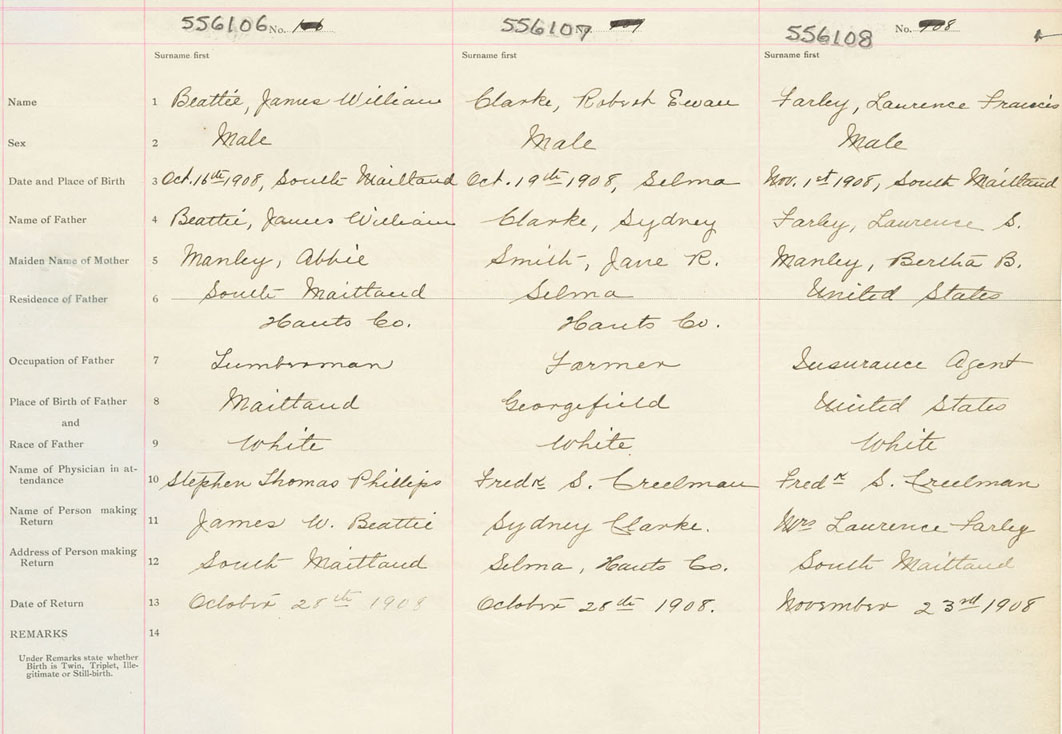 556106 No.
556107 No.
556108 No. 908
Surname first Surname first Surname first
Name 1 Beattie, James William Clarke, Robert Ewan Farley, Laurence Francis
Sex 2 Male Male Male
Date and Place of Birth 3 Oct. 16th 1908, South Maitland Oct. 19th 1908, Selma Nov. 1st 1908, South Maitland
Name of Father 4 Beattie, James William Clarke, Sydney Farley, Laurence S.
Maiden Name of Mother 5 Manley, Abbie Smith, Jane R. Manley, Bertha B.
Residence of Father 6 South Maitland Selma United States
Hants Co. Hants Co.
Occupation of Father 7 Lumberman Farmer Insurance Agent
Place of Birth of Father 8 Maitland Georgefield United States
and
Race of Father 9 White White White
Name of Physician in at-
tendance 10 Stephen Thomas Phillips Fredk S. Creelman Fredk S. Creelman
Name of Person making
Return 11 James W. Beattie Sydney Clarke. Mrs Laurence Farley
Address of Person making
Return 12 South Maitland Selma, Hants Co. South Maitland
Date of Return 13 October 28th 1908 October 28th 1908. November 23rd 1908
REMARKS 14
Under Remarks state whether
Birth is Twin, Triplet, Ille-
gitimate or Still-birth.